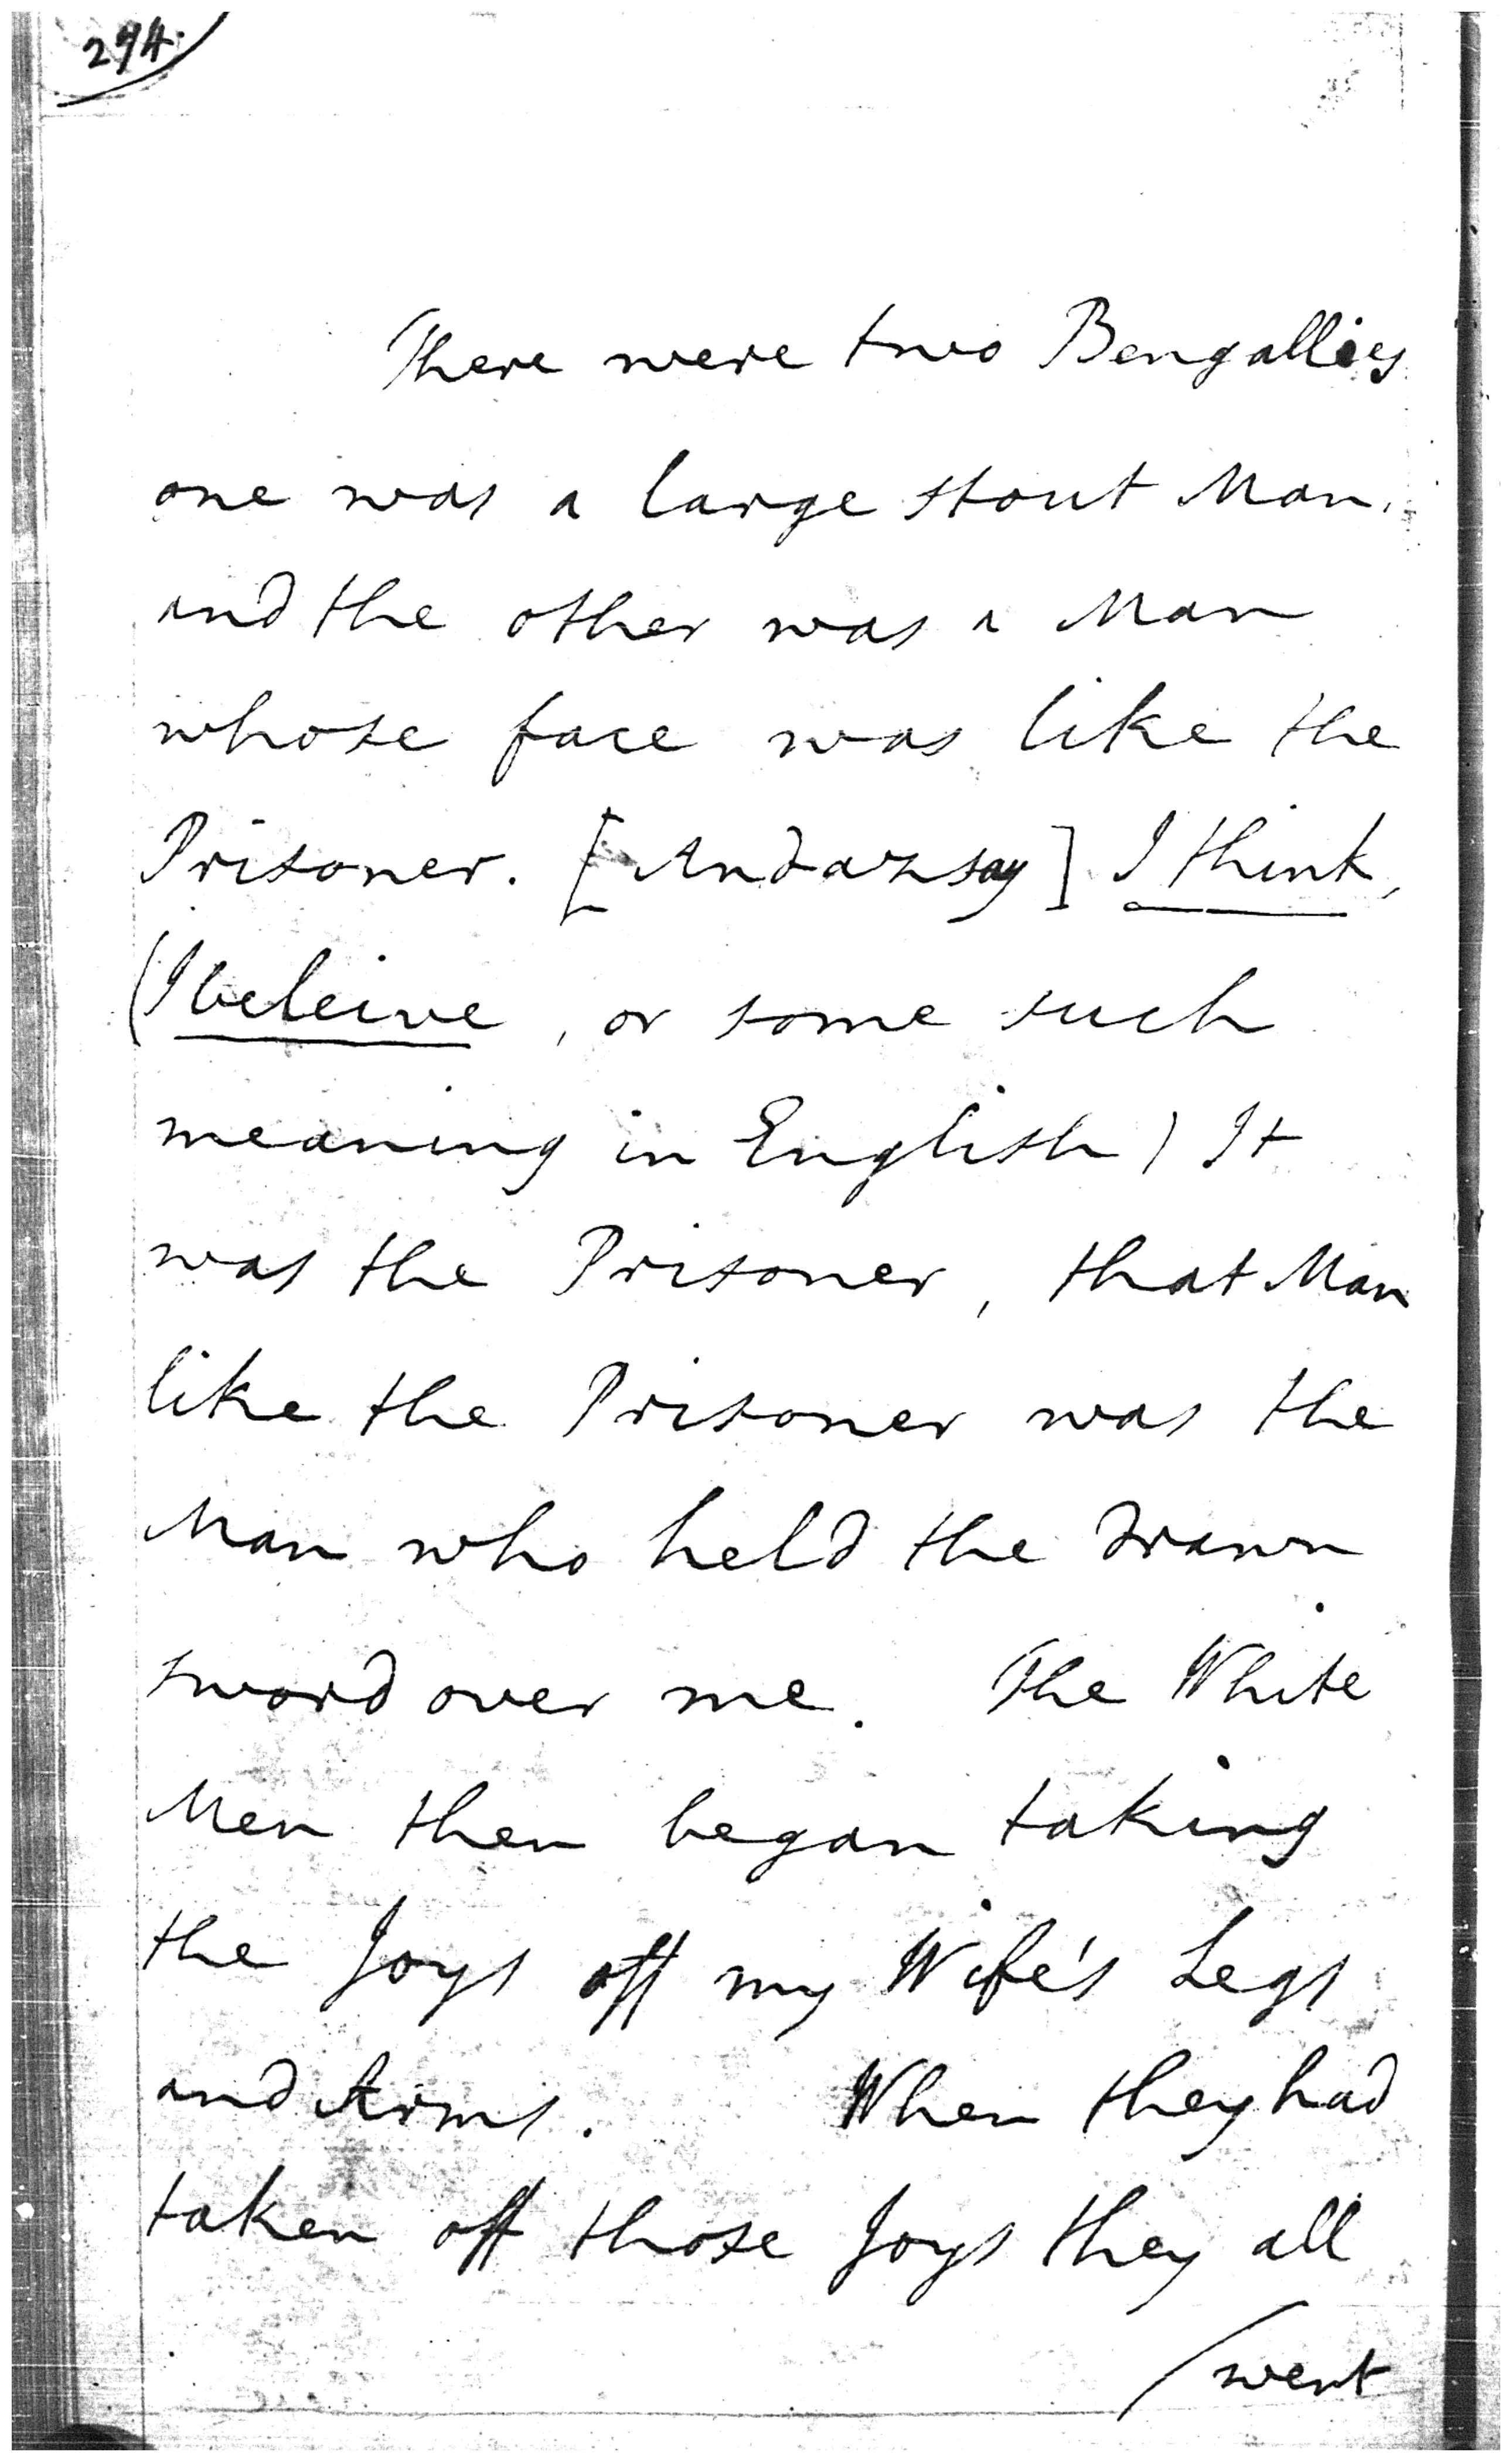 274.
There were two Bengallies
one was a large stout Man,
and the other was a Man
whose face was like the
Prisoner. [Andarsay] I think,
(I beleive, or some such
meaning in English) It
was the Prisoner, that Man
like the Prisoner was the
Man who held the drawn
sword over me. The White
Men then began taking
the Joys off my Wife's Legs
and Arms. When they had
taken off those Joys they all
/went